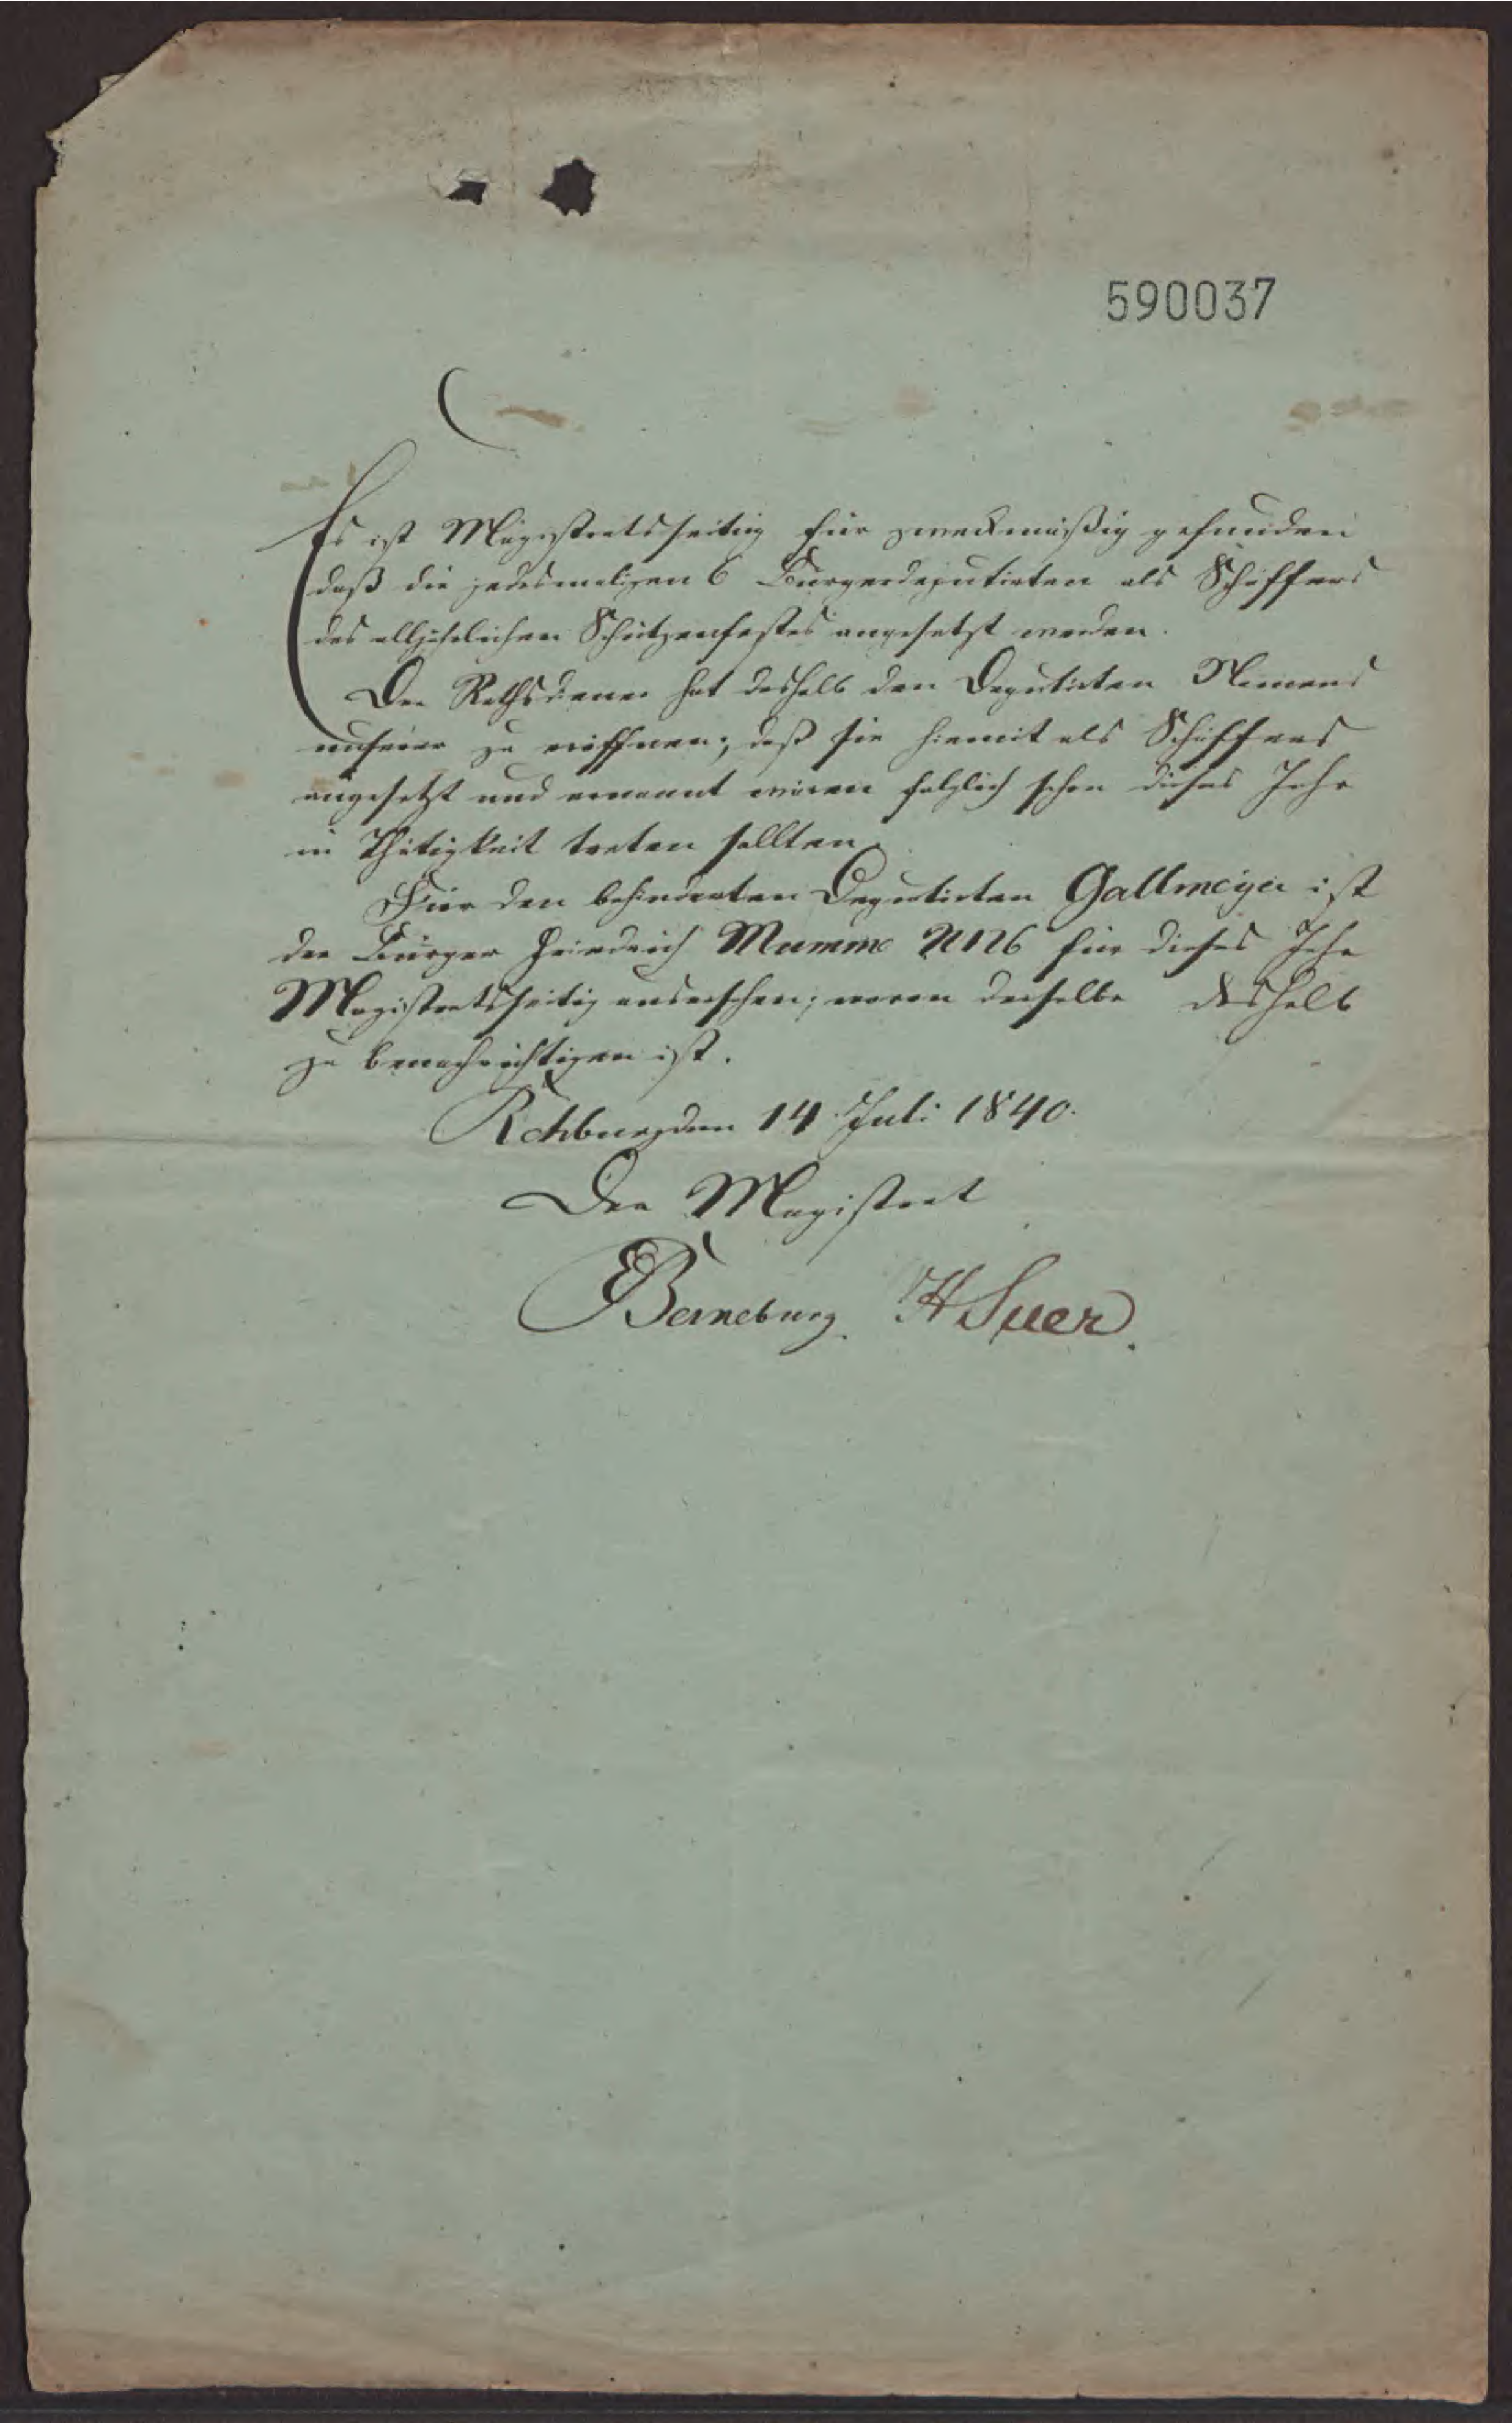 590037
Es ist Magistratsseitig für zweckmäßig gefunden
daß die jedesmaligen 6 Bürgerdeputirten als Schaffers
des alljährlichen Schützenfestes angesetzt werden.
Der Rathsdiener hat deshalb den Deputirten Namens
unserer zu eröffnen, daß sie hiemit als Schaffers
angesetzt und ernannt wären folglich schon dieses Jahr
in Thätigkeit treten sollten.
Für den behinderten Deputirten Gallmeyer ist
der Bürger Friedrich Mumme N126 für dieses Jahr
Magistratsseitig ausersehen, wovon derselbe deshalb
zu benachrichtigen ist.
Rehburg den 14 Juli 1840.
Der Magistrat
Berneburg. H Suer.